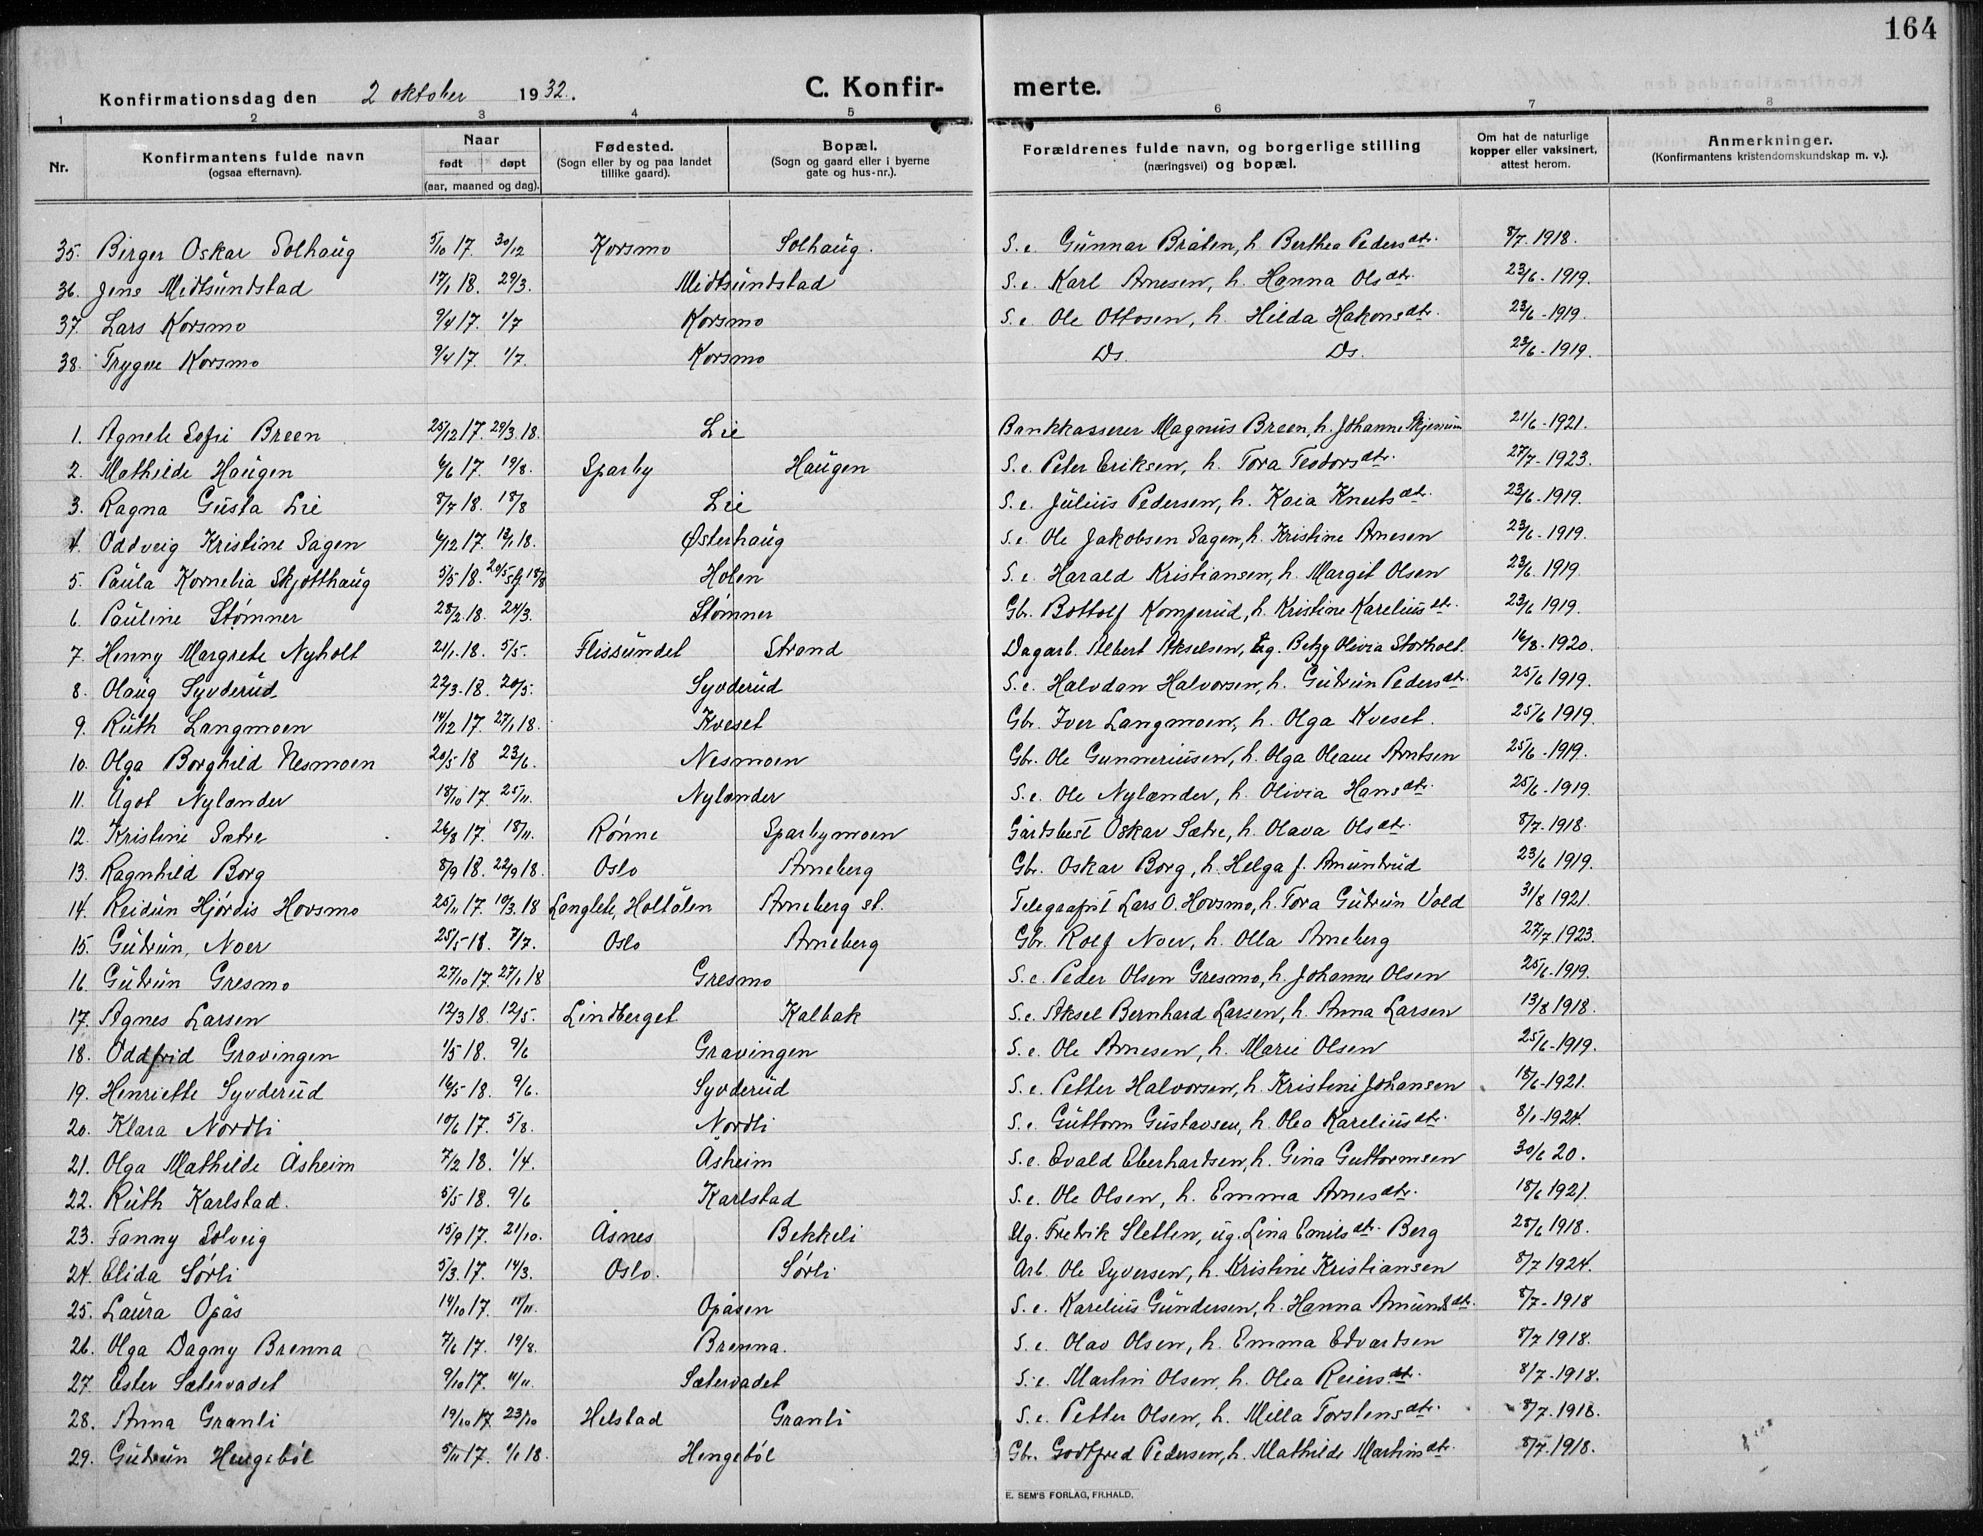 164
Konfirmationsdag den 2 oktober 1932. C. Konfirmerte.
1 2 3 4 5 6 7 8
Nr. Konfirmantens fulde navn (ogsaa efternavn). Naar født døpt (aar, maaned og dag). Fødested. (Sogn eller by og paa landet tillike gaard). Bopæl. (Sogn og gaard eller i byerne gate og hus-nr.). Forældrenes fulde navn, og borgerlige stilling (næringsvei) og bopæl. Om hat de naturlige kopper eller vaksinert, attest herom. Anmerkninger. (Konfirmantens kristendomskundskap m. v.).
35. Birger Oskar Solhaug 5/10 17. 30/12 Korsmo Solhaug. S. e. Gunnar Bråten, h. Berthea Pedersdtr. 8/7. 1918.
36. Jens Midtsundstad 17/1 18. 29/3. Midtsundstad S. e. Karl Arnesen, h. Hanna Olsdtr. 23/6 - 1919.
37 Lars Korsmo 9/4 17. 1/7 Korsmo S. e. Ole Ottosen, h. Hilda Hakonsdtr. 23/6 - 1919.
38. Trygve Korsmo 9/4 17. 1/7. Korsmo Ds. Ds. 23/6 - 1919.
1. Agnete Sofie Breen 25/12 17. 29/3. 18. Lie Bankkasserer Magnus Breen, h. Johanne Skjerum 21/6 - 1921.
2. Mathilde Haugen 6/6 17. 19/8. Sparby Haugen S. e. Peter Eriksen, h. Tora Teodorsdtr. 27/7 - 1923.
3. Ragna Gusta Lie 8/7 18. 18/8 Lie S. e. Julius Pedersen, h. Kaia Knutsdtr. 23/6 - 1919.
4. Oddveig Kristine Sagen 6/12 17. 13/1 18. Østerhaug S. e. Ole Jakobsen Sagen, h. Kristine Arnesen 23/6 - 1919.
5. Paula Kornelia Skjotthaug 5/5 18. 20/5 stf. 18/8 Holen S. e. Harald Kristiansen, h. Margit Olsen 23/6. 1919
6. Pauline Stømner 28/2. 18. 24/3. Stømner Gbr. Bottolf Komperud, h. Kristine Kareliusdtr. 23/6 1919.
7. Henny Margrete Nyholt 21/1. 18. 5/5. Flissundet Strand Dagarb. Albert Akselsen, ug. Betzy Olivia Storholt. 16/8 - 1920.
8. Olaug Syvderud 22/3. 18. 20/5. Syvderud S. e. Halvdan Halvorsen, h. Gudrun Pedersdtr. 25/6 1919.
9. Ruth Langmoen 14/12 17. 27/1 18. Kveset Gbr. Iver Langmoen, h. Olga Kveset. 25/6 1919.
10. Olga Borghild Nesmoen 20/5 18 23/6. Nesmoen Gbr. Ole Gunneriusen, h. Olga Oleane Arntsen 25/6 - 1919.
11. Ågot Nylænder 18/10 17. 25/11. Nylænder S. e. Ole Nylænder, h. Olivia Hansdtr. 25/6 - 1919.
12. Kristine Sætre 26/8 17. 18/11. Rønne Sparbymoen Gårdsbest Oskar Sætre, h. Olava Olsdtr. 8/7. 1918.
13. Ragnhild Borg 8/9 18. 22/9 18. Oslo Arneberg Gbr. Oskar Borg, h. Helga f. Amundrud 23/6 1919.
14. Reidun Hjørdis Hovsmo 25/11 17. 10/3. 18 Langlete, Holtålen Arneberg st. Telegrafist Lars O. Hovsmo, h. Tora Gudrun Vold 31/8 1921.
15. Gudrun, Noer 25/5 18. 7/7. Oslo Arneberg Gbr. Rolf Noer, h. Olla Arneberg 27/7 1923.
16. Gudrun Gresmo 27/10 17. 27/1 18 Gresmo S. e. Peder Olsen Gresmo, h. Johanne Olsen 25/6 - 1919.
17. Agnes Larsen 12/3 18. 12/5. Lindberget Kalbak S. e. Aksel Bernhard Larsen, h. Anna Larsen 13/8 1918.
18. Oddfrid Gravingen 1/5 18. 9/6 Gravingen S. e. Ole Arnesen, h. Marie Olsen 25/6 - 1919.
19. Henriette Syvderud 16/5 18. 9/6. Syvderud S. e. Petter Halvorsen, h. Kristine Johansen 18/6 - 1921.
20. Klara Nordli 10/6 17. 5/8. Nordli S. e. Guttorm Gustavsen, h. Olea Kareliusdtr. 8/1 - 1924.
21. Olga Mathilde Åsheim 7/2 18. 1/4. Åsheim S. e. Evald Eberhardsen, h. Gina Guttormsen 30/6 20.
22. Ruth Karlstad. 5/5 18. 9/6 Karlstad S. e. Ole Olsen, h. Emma Arnesdtr. 18/6 1921.
23. Fanny Solveig 15/9 17. 21/10. Åsnes Bekkeli Ug. Fredrik Sletten, ug. Lina Emilsdtr. Berg 28/6 1918.
24. Elida Sørli 5/3. 17. 14/3. Oslo. Sørli Arb. Ole Syversen, h. Kristine Kristiansen 8/7 1924.
25. Laura Opås 14/10 17. 11/11. Opåsen S. e. Karelius Gundersen, h. Hanna Amundsdtr. 8/7 - 1918
26. Olga Dagny Brenna 7/6 17. 19/8. Brenna. S. e. Olav Olsen, h. Emma Edvardsen 8/7 1918.
27. Ester Sætervadet 9/10 17. 11/11. Sætervadet S. e. Martin Olsen, h. Olea Reiersdtr. 8/7 - 1918.
28. Anna Granli 19/10 17. 23/10 Helstad Granli S. e. Petter Olsen, h. Milla Torstensdtr. 8/7 - 1918.
29. Gudrun Hengebøl 5/11 17. 1/1 18. Hengebøl Gbr. Godtfred Pedersen, h. Mathilde Martinsdtr. 8/7 - 1918.
E. SEM'S FORLAG, FR.HALD.